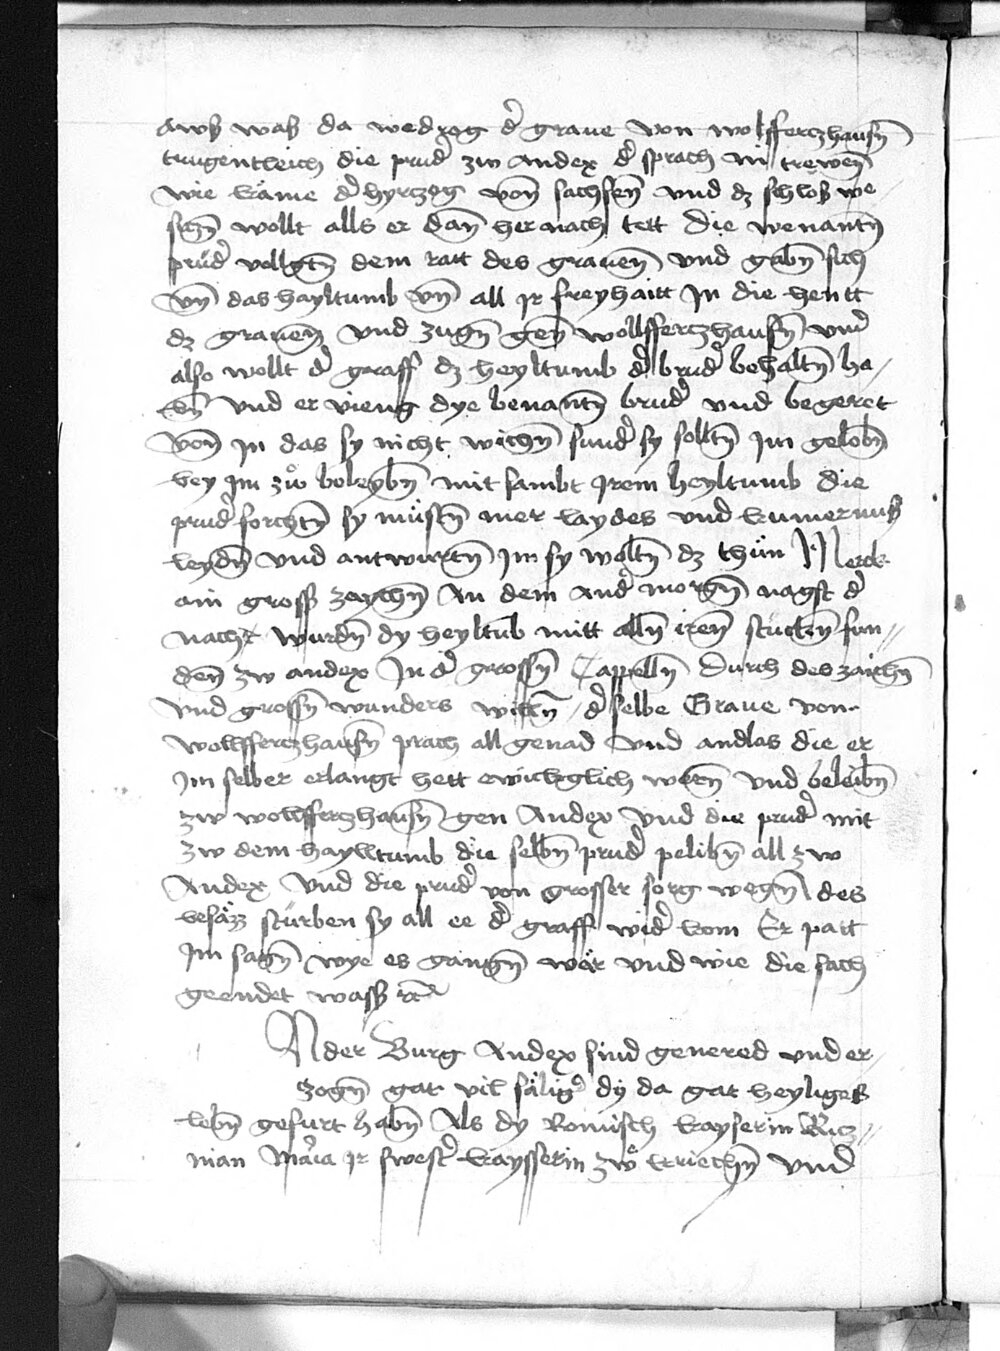 Awß waß da wedrog d̄ graue von wolffertzhausn̄
trugentleich die prud̄ zw Andex d̄ sprach in trewen̄
wie käme d̄ hyrtzog von̄ sachsen̄ vnd dz schloß we⸗
sitzn̄ wollt alls er dan̄ her nach tett Die wenantn̄
prüd̄ vollgtn̄ dem ratt des grauen̄ vnd gabn̄ sich
vn̄ das hayltumb vn̄ all jr freyhaitt Jn die hentt
dz grauen̄ vnd zugn̄ gen̄ wollffertzhausn̄ vnd
also wollt d̄ graff dz heyltumb d̄ brud̄ behaltn̄ ha⸗
bn̄ vnd er vieng dye benantn̄ brud̄ vnd begeret
von̄ jn das sy nicht wichn̄ sund̄ sy solltn̄ im gelobn̄
bey jm zů beleybn̄ mit sambt jrem heyltumb die
prud̄ forchtn̄ sy müstn̄ mer laydes vnd kumernuß
leydn̄ vnd antwurtn̄ jm sy woltn̄ dz thün Merck
ain gross zaychn̄ An dem And̄ morgn̄ nagst d̄
nacht wurdn̄ dy heyltūb mitt alln̄ iren̄ stuckn̄ fun⸗
den̄ zw andex Jn d̄ grossn̄ Cappelln̄ Durch des zaichn̄
vnd grossn̄ wunders willn̄ / d̄ selbe Graue von
wollffertzhausn̄ prach all genad vnd andlas die er
jm selber erlangt hett ewichglich wern̄ vnd beleibn̄
zw wollffertzhausn̄ gen Andex vnd die prud̄ mit
zw dem hayltumb die selbn̄ prud̄ pelibn̄ all zw
Andex vnd die prud̄ von grosser sorg wegn̄ des
besäzz stürben sy all ee d̄ graff wid̄ kom Er patt
jm sagn̄ wye es gangn̄ wär vnd wie die sach
geendet wass rc̄
An der Burg Andex sind genered vnd er⸗
zogn̄ gar vil säliḡ dy da gar heyliges
lebn̄ gefurt habn̄ Als dy Romisch kayserin
nian Mar̄ia jr swest̄ kaysserin zw̄ kriechn̄ vnd